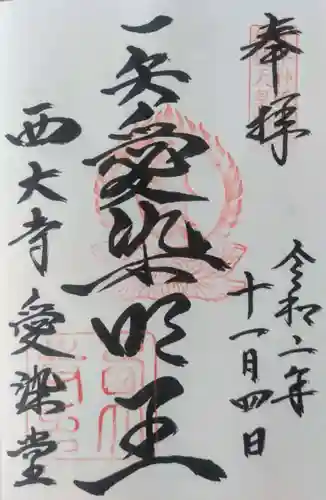 奉拝
令和二年
十一月四日
一矢愛染明王
西大寺愛染堂